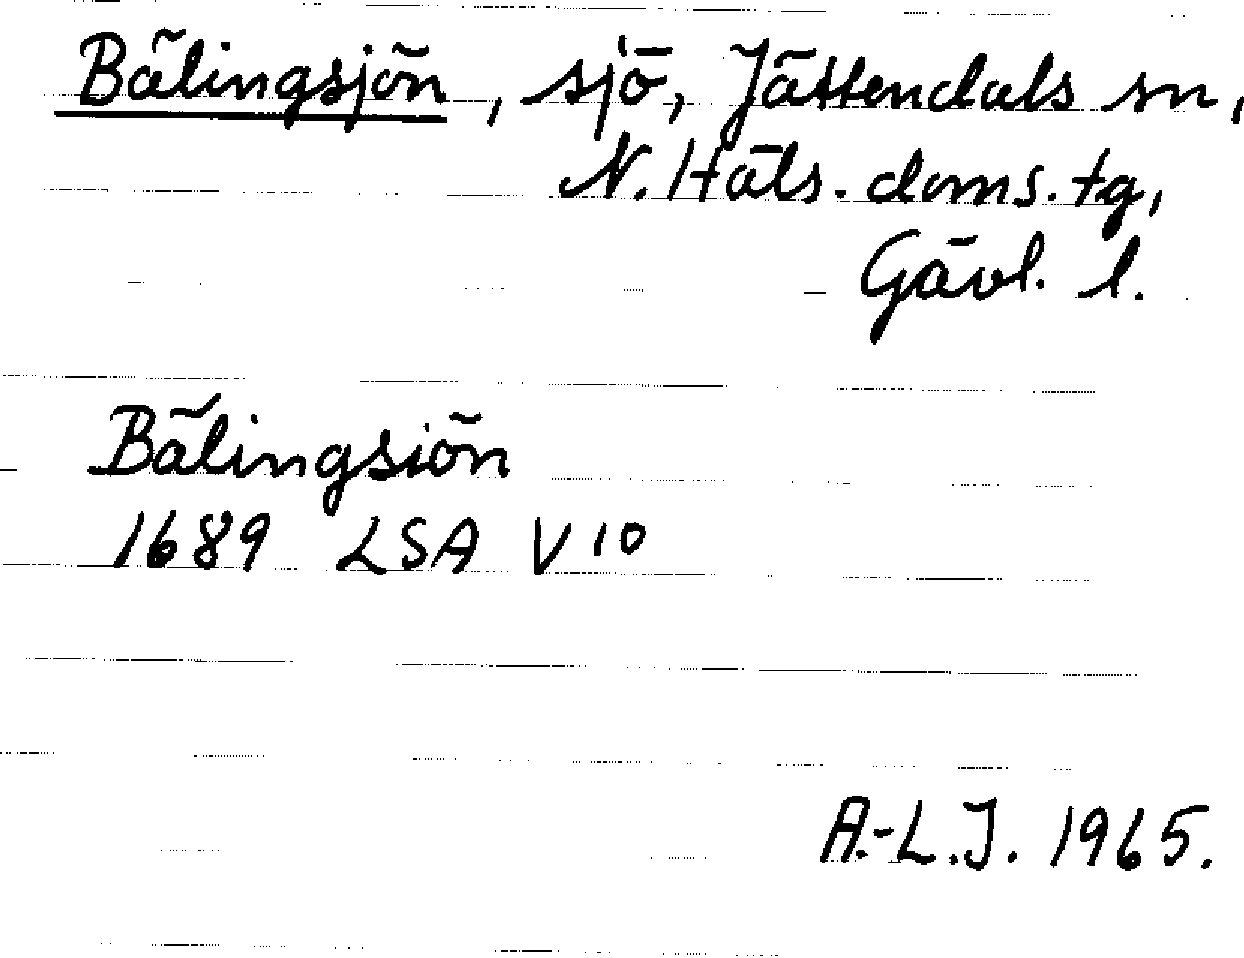 Bälingsjön, sjö, Jättendals sn,
N. Häls. doms. tg,
Gävl. l.
Bälingsiön
1689 LSA V 10
A.-L.J. 1965.